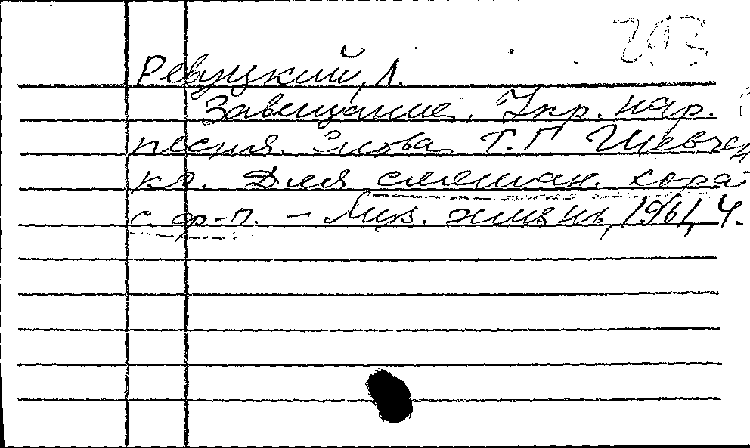 Ревуцкий, Л.
Завещание. Укр. нар.
песня. Слова Т. Г. Шевчен
ко. Для смешан. хора
с ф-п. – Муз. жизнь, 1961, 4.